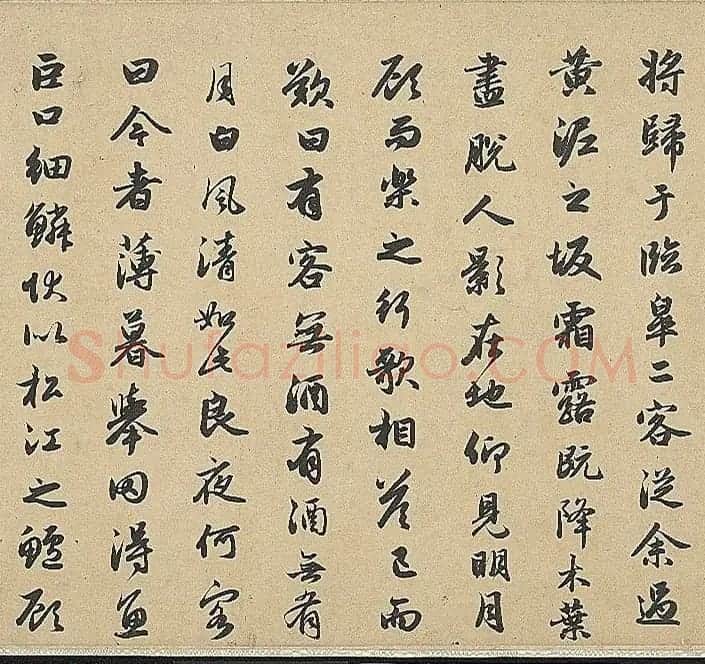 將歸于臨皐二客從余過
黃泥之坂霜露既降木葉
盡脫人影在地仰見明月
顧而樂之行歌相答已而
歎曰有客無酒有酒無肴
月白風清如此良夜何客
曰今者薄暮舉网得魚
巨口細鱗狀以松江之鱸顧
Shufaziliao.COM